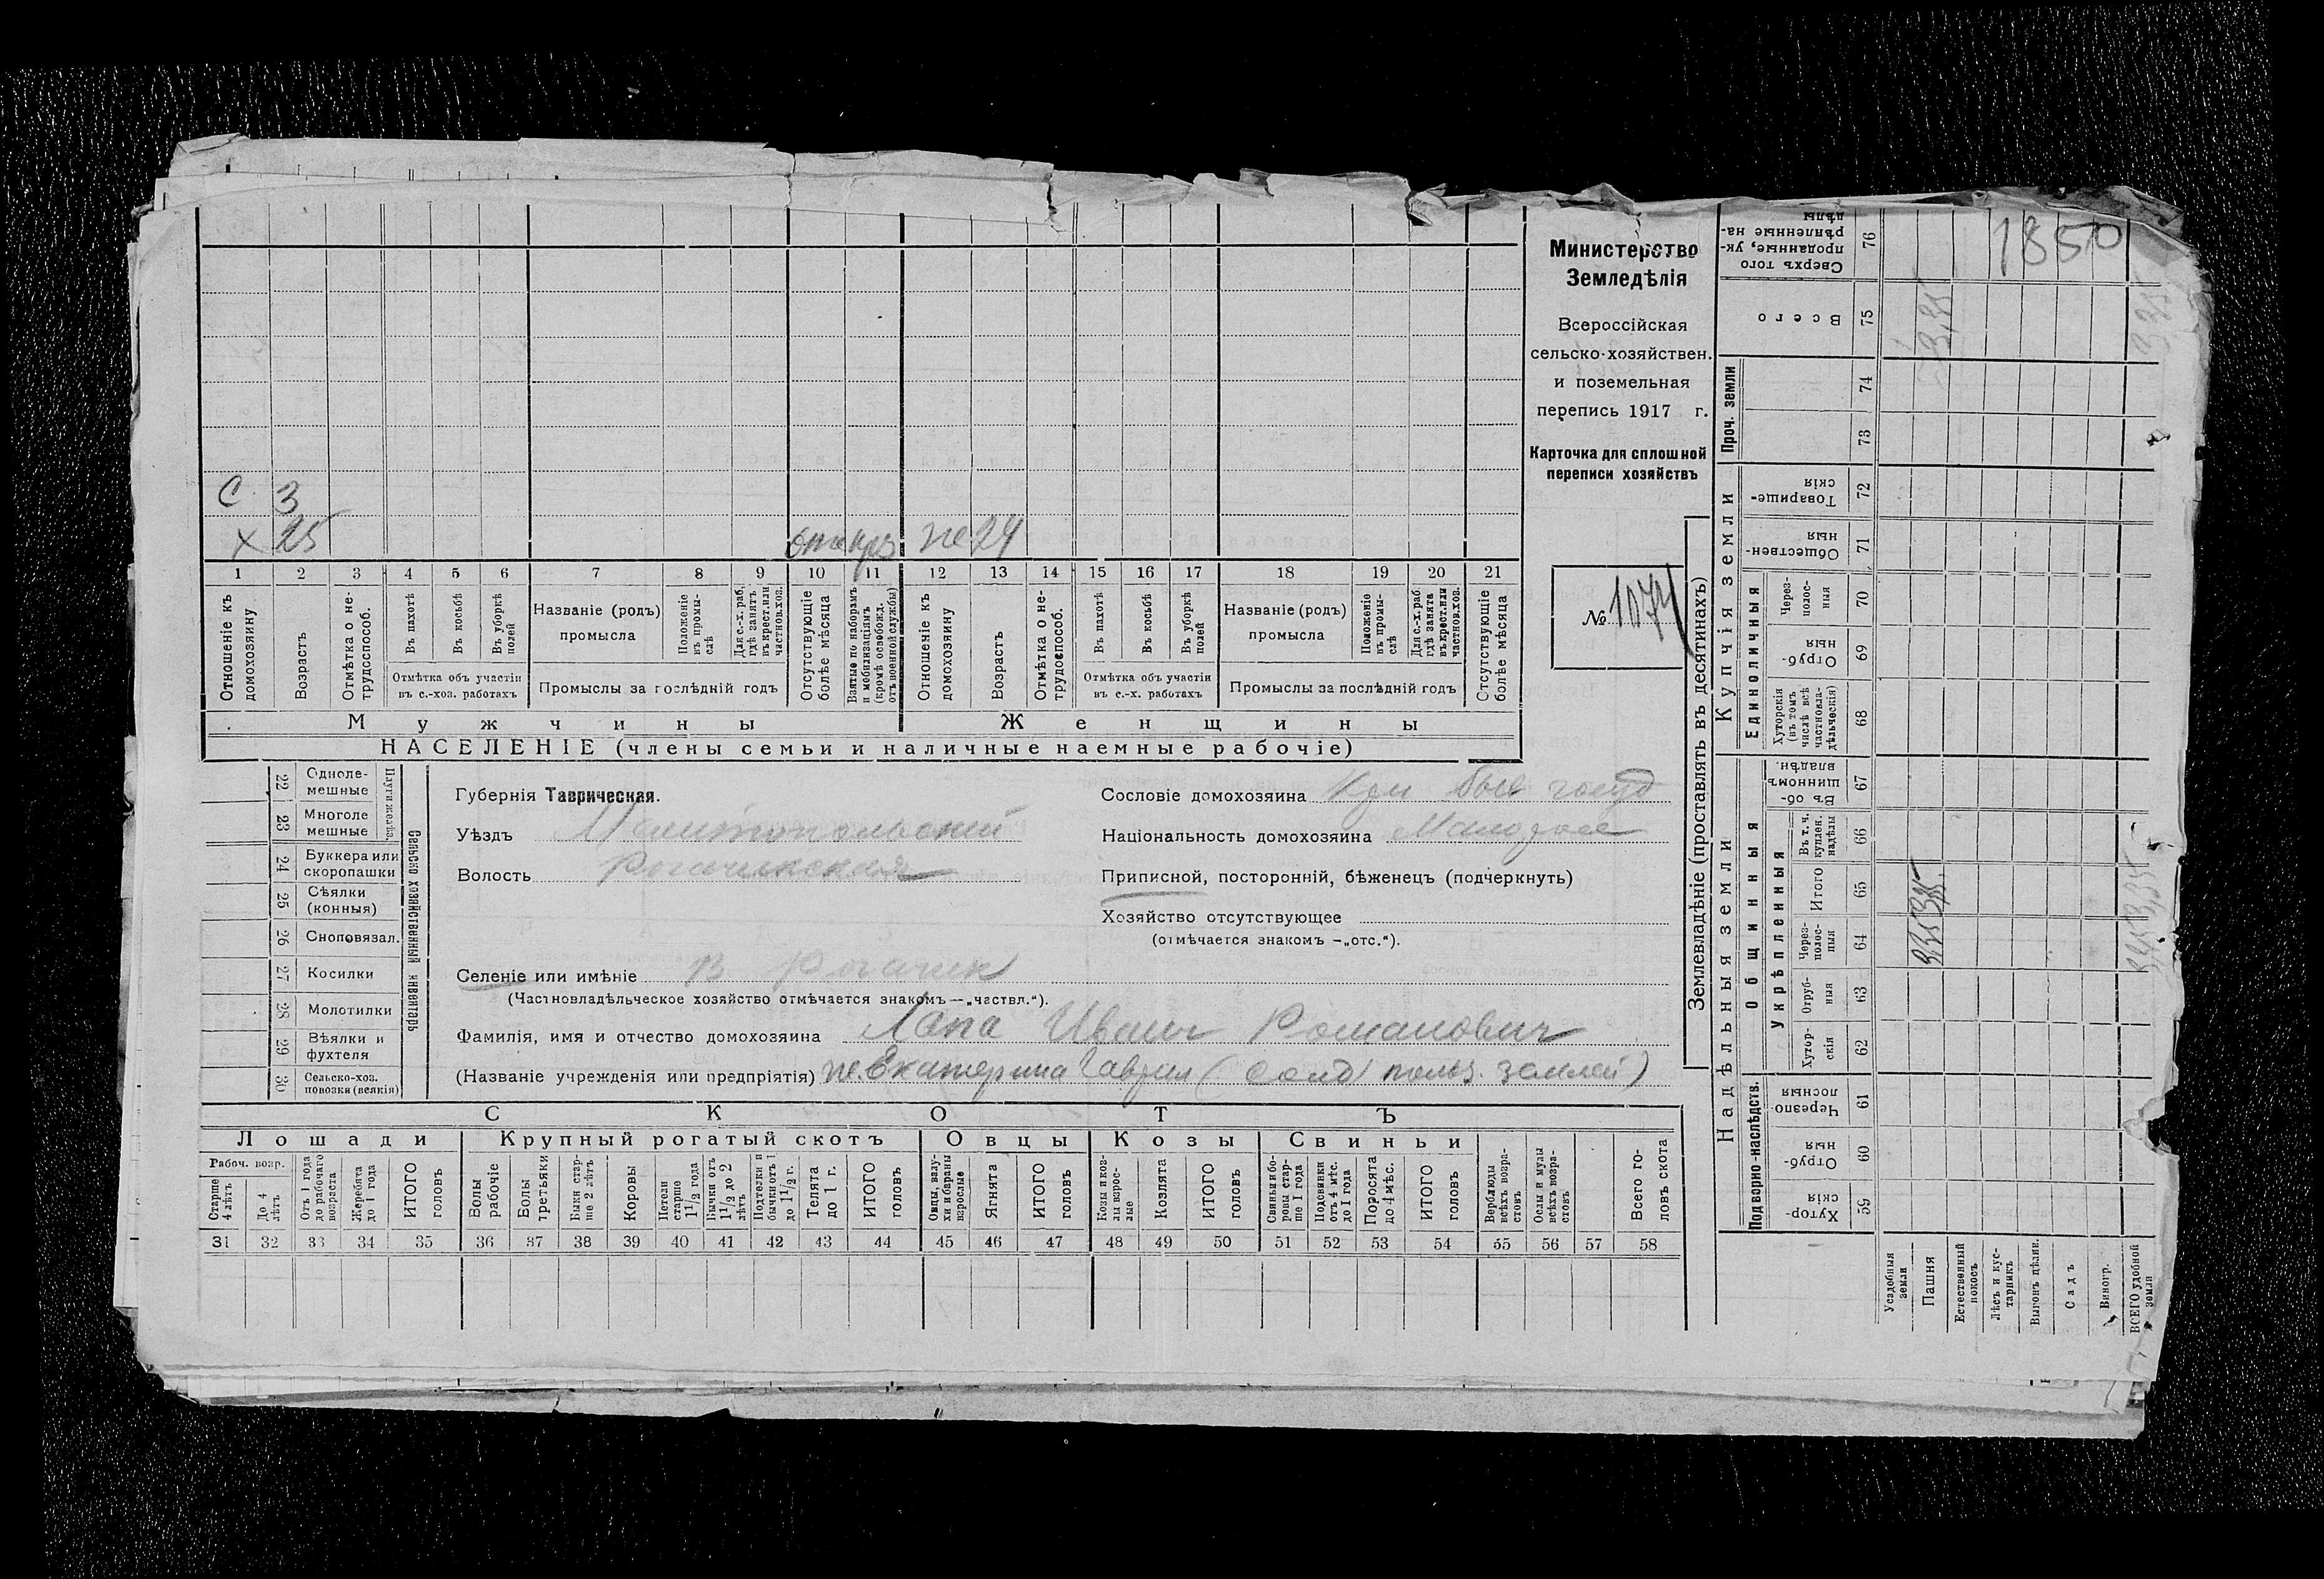 1850
Министерство
Земледѣлія
Всероссійская
сельско-хозяйствен.
и поземельная
перепись 1917 г.
Карточка для сплошной
переписи хозяйствъ
№ 1074
С 3
х 25 же 24
1 2 3 4 5 6 7 8 9 10 11 12 13 14 15 16 17 18 19 20 21
Отношеніе къ домохозяину
Возрастъ
Отмѣтка о не-трудоспособ.
Въ пахотѣ
Въ косьбѣ
Въ уборкѣ полей
Отмѣтка объ участіи въ с.-хоз. работахъ
Названіе (родъ) промысла
Положеніе въ промы-слѣ
Для с.-х. раб. гдѣ занятъ въ крест. или частнов. хоз.
Промыслы за послѣдній годъ
Отсутствующіе болѣе мѣсяца
Взятые по наборамъ и мобилизаціямъ (кромѣ освобожд. отъ военной службы)
Отношеніе къ домохозяину
Возрастъ
Отмѣтка о не-трудоспособ.
Въ пахотѣ
Въ косьбѣ
Въ уборкѣ полей
Отмѣтка объ участіи въ с.-х. работахъ
Названіе (родъ) промысла
Положеніе въ промы-слѣ
Для с.-х. раб. гдѣ занята въ крест. или частнов. хоз.
Промыслы за послѣдній годъ
Отсутствующіе болѣе мѣсяца
Мужчины Женщины
НАСЕЛЕНІЕ (члены семьи и наличные наемные рабочіе)
22 Одноле-мешные
23 Многоле мешные
24 Буккера или скоропашки
25 Сѣялки (конныя)
26 Сноповязал.
27 Косилки
28 Молотилки
29 Вѣялки и фухтеля
30 Сельско-хоз. повозки (всякія)
Сельско хозяйственный инвентарь
Губернія Таврическая.
Уѣздъ Мелитопольский
Волость Рогачикская
Сословіе домохозяина
Національность домохозяина Малоросс
Приписной, посторонній, бѣженецъ (подчеркнуть)
Хозяйство отсутствующее
(отмѣчается знакомъ —„отс.“).
Селеніе или имѣніе В Рогачик
(Частновладѣльческое хозяйство отмѣчается знакомъ —„частвл.“).
Фамилія, имя и отчество домохозяина Лапа Иван Романович
(Названіе учрежденія или предпріятія) же. Екатерина Гаврил ( польз. землей)
СКОТЪ
Лошади Крупный рогатый скотъ Овцы Козы Свиньи
Рабоч. возр.
Старше 4 лѣтъ
До 4 лѣтъ
Отъ 1 года до рабочаго возраста
Жеребята до 1 года
ИТОГО головъ
Волы рабочіе
Волы третьяки
Быки стар-ше 2 лѣтъ
Коровы
Нетели старше 1½ года
Бычки отъ 1½ до 2 лѣтъ
Подтелки и бычки отъ 1 до 1½ г.
Телята до 1 г.
ИТОГО головъ
Овцы, валу-хи и бараны взрослые
Ягнята
ИТОГО головъ
Козы и коз-лы взрос-лые
Козлята
ИТОГО головъ
Свиньи и бо-ровы стар-ше 1 года
Подсвинки отъ 4 мѣс. до 1 года
Поросята до 4 мѣс.
ИТОГО головъ
Верблюды всѣхъ возра-стовъ
Ослы и мулы всѣхъ возра-стовъ
Всего го-ловъ скота
31 32 33 34 35 36 37 38 39 40 41 42 43 44 45 46 47 48 49 50 51 52 53 54 55 56 57 58
Землевладѣніе (проставлять въ десятинахъ)
Надѣльныя земли
Купчія земли
Проч. земли
Подворно-наслѣдств.
Общинныя
Укрѣпленныя
Единоличныя
59 Хутор-скія
60 Отруб-ныя
61 Черезпо-лосныя
62 Хутор-скія
63 Отруб-ныя
64 Через-полос-ныя
65 Итого
66 Въ т. ч. куплен. надѣлы
67 Въ об-щинномъ владѣн.
68 Хуторскія (въ томъ числѣ всѣ частновла-дѣльческія)
69 Отруб-ныя
70 Через-полос-ныя
71 Обществен-ныя
72 Товарище-скія
73
74
75 Всего
76 Сверхъ того проданные, ук-рѣпленные на-дѣлы
Усадебныя земли
Пашня 3,35 3,35 3,35
Естественный покосъ
Лѣсъ и кус-тарникъ
Выгонъ цѣлин.
Садъ
Виногр.
ВСЕГО удобной земли 3,35 3,35 3,35